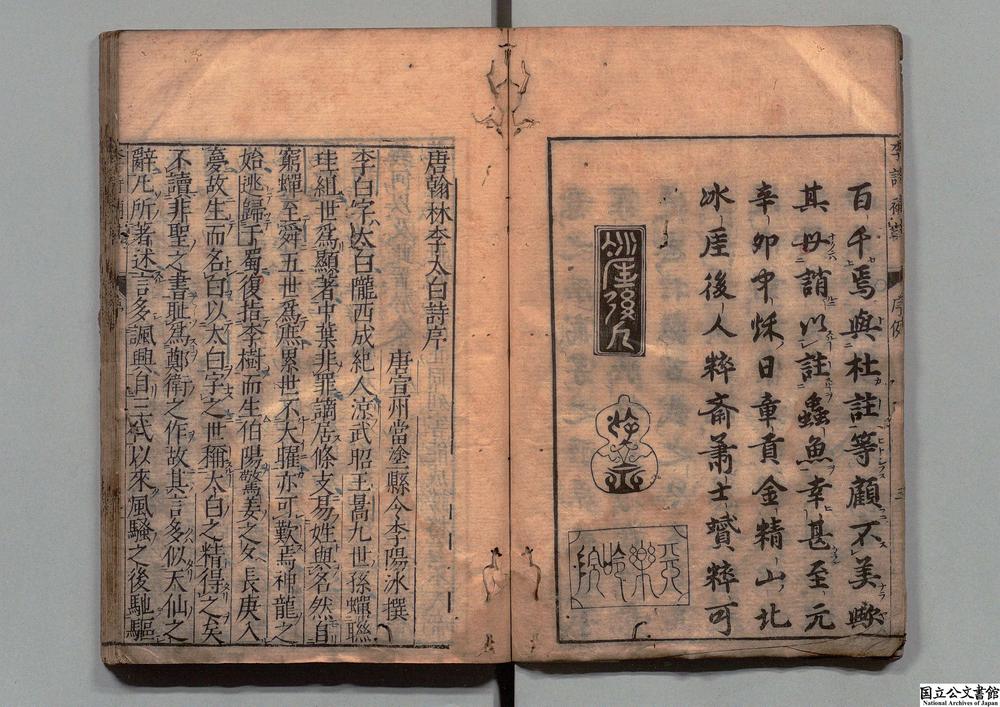 百千焉與杜註等顧不美歟
其毋誚以註蟲魚幸甚至元
辛卯中秌日章貢金精山北
冰厓後人粹齋蕭士贇粹可
冰厓後人
粹齋
唐翰林李太白詩序
唐宣州當塗縣令李陽冰撰
李白字太白隴西成紀人涼武昭王暠九世孫蟬聯
珪組世爲顯著中葉非罪謫居條支易姓與名然自
窮蟬至舜五世爲庶累世不大曜亦可歎焉神龍之
始逃歸于蜀復指李樹而生伯陽驚姜之夕長庚入
夢故生而名白以太白字之世稱太白之精得之矣
不讀非聖之書耻爲鄭衛之作故其言多似天仙之
辭凡所著述言多諷興自三代以來風騷之後馳驅
国立公文書館
National Archives of Japan